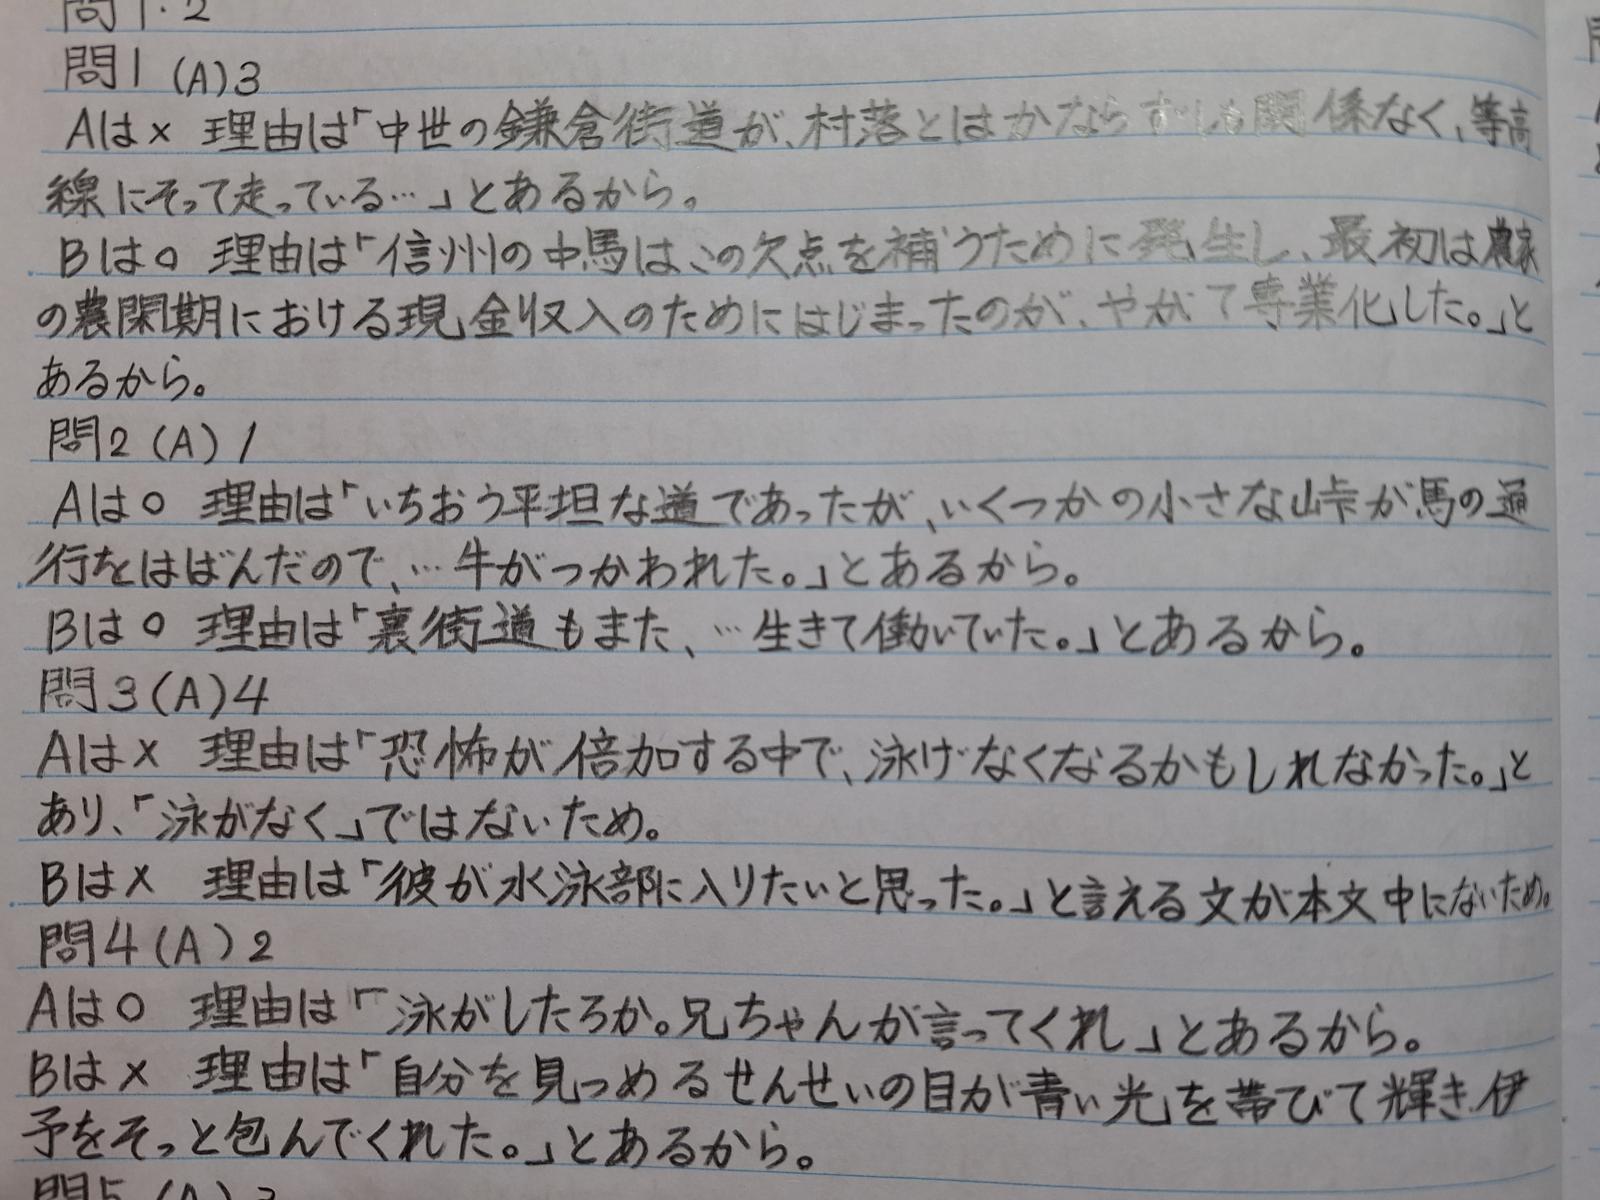 問1.2
問1 (A)3
Aは× 理由は「中世の鎌倉街道が、村落とはかならずしも関係なく、等高
線にそって走っている…」とあるから。
Bは○ 理由は「信州の中馬はこの欠点を補うために発生し、最初は農家
の農閑期における現金収入のためにはじまったのが、やがて専業化した。」と
あるから。
問2 (A) 1
Aは○ 理由は「いちおう平坦な道であったが、いくつかの小さな峠が馬の通
行をはばんだので、…牛がつかわれた。」とあるから。
Bは○ 理由は「裏街道もまた、…生きて働いていた。」とあるから。
問3(A)4
Aは× 理由は「恐怖が倍加する中で、泳げなくなるかもしれなかった。」と
あり、「泳がなく」ではないため。
Bは× 理由は「彼が水泳部に入りたいと思った。」と言える文が本文中にないため。
問4(A)2
Aは○ 理由は「泳がしたろか。兄ちゃんが言ってくれ」とあるから。
Bは× 理由は「自分を見つめるせんせいの目が青い光を帯びて輝き、伊
予をそっと包んでくれた。」とあるから。
問5 (A)